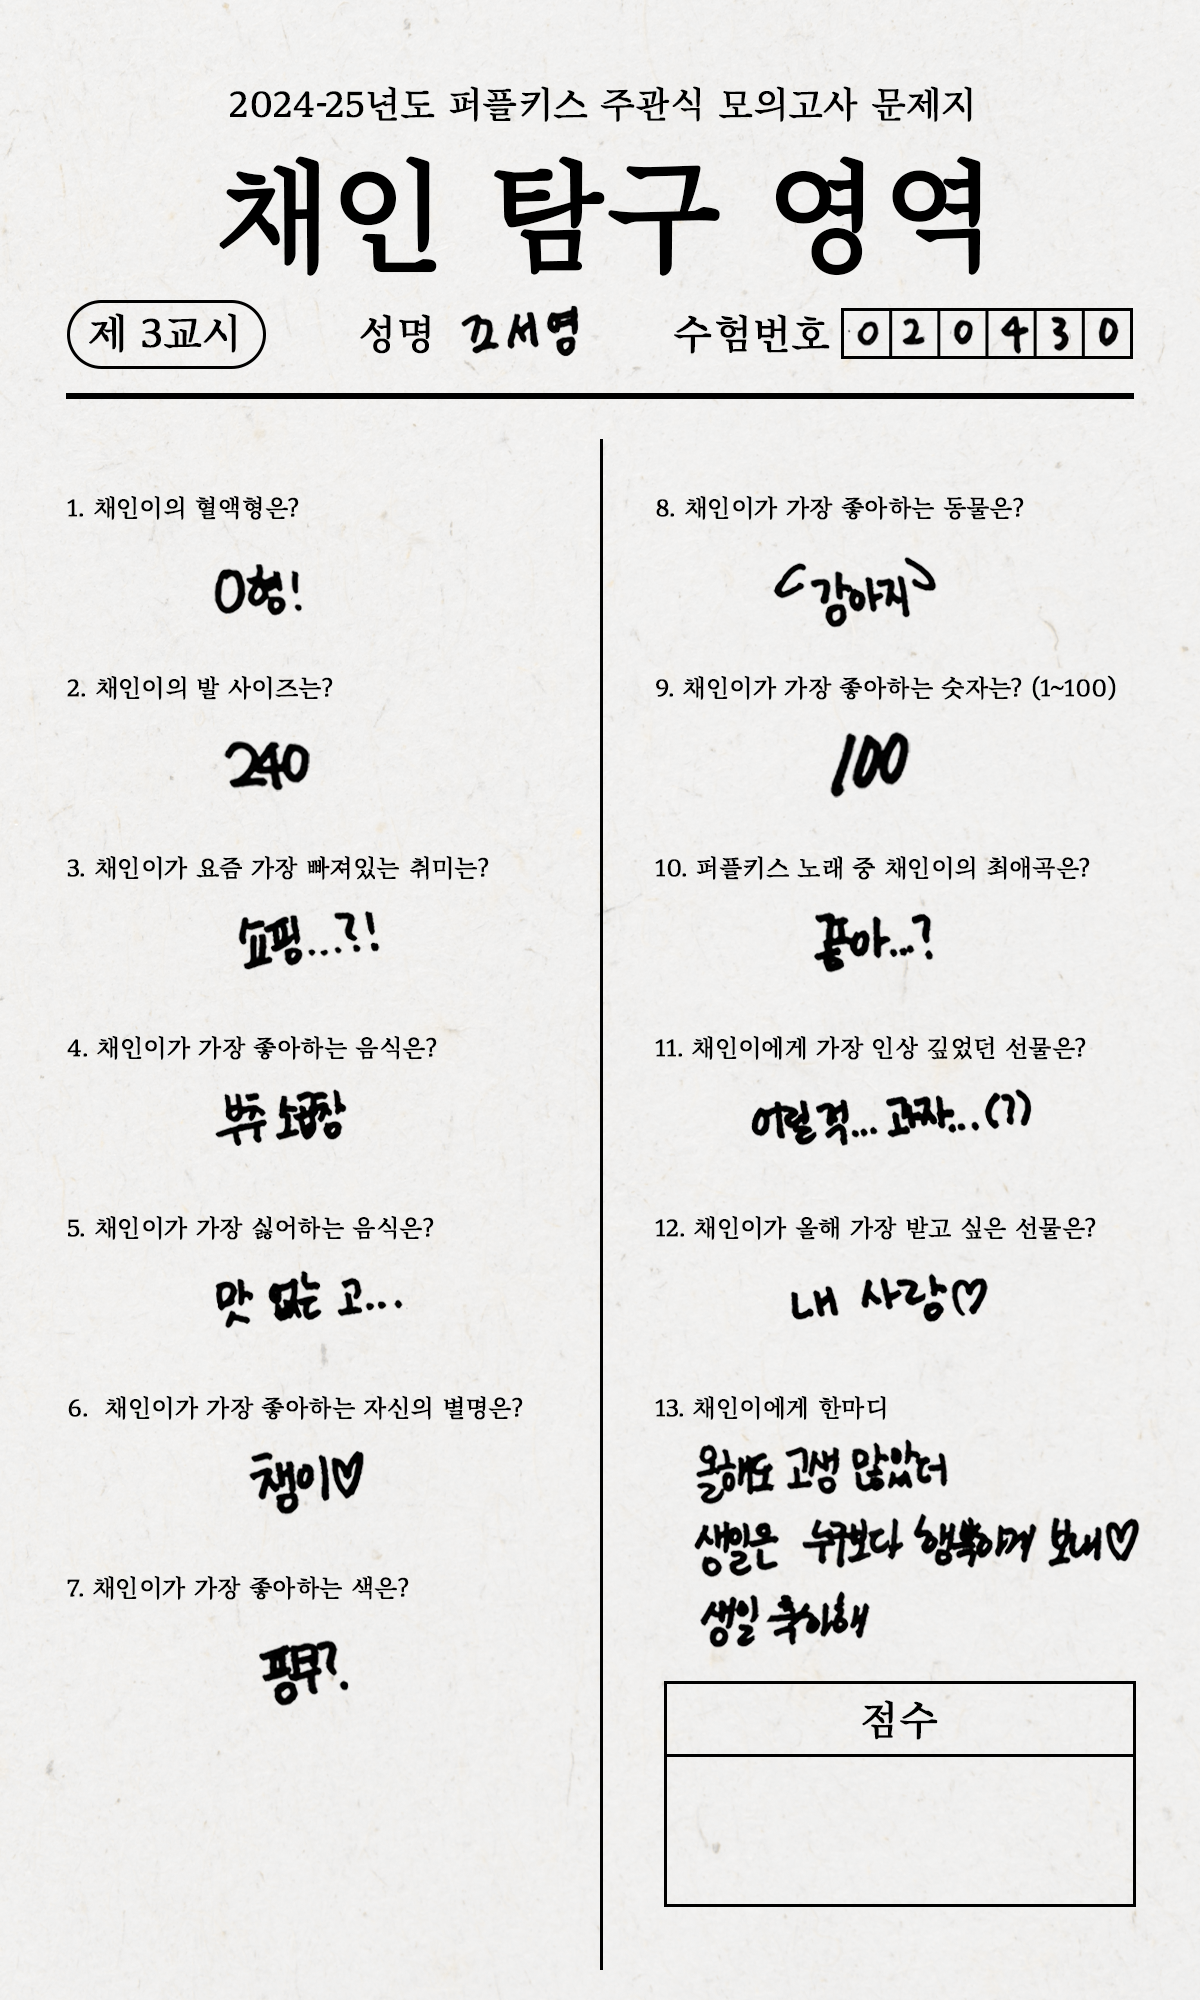 2024-25년도 퍼플키스 주관식 모의고사 문제지
채인 탐구 영역
제 3교시 성명 고서영 수험번호 020430
1. 채인이의 혈액형은?
O형!
2. 채인이의 발 사이즈는?
240
3. 채인이가 요즘 가장 빠져있는 취미는?
쇼핑...?!
4. 채인이가 가장 좋아하는 음식은?
부추 소곱창
5. 채인이가 가장 싫어하는 음식은?
맛 없는 고...
6. 채인이가 가장 좋아하는 자신의 별명은?
챙이♡
7. 채인이가 가장 좋아하는 색은?
핑쿠?.
8. 채인이가 가장 좋아하는 동물은?
강아지
9. 채인이가 가장 좋아하는 숫자는? (1~100)
100
10. 퍼플키스 노래 중 채인이의 최애곡은?
좋아...?
11. 채인이에게 가장 인상 깊었던 선물은?
어릴 적... 과자...(?)
12. 채인이가 올해 가장 받고 싶은 선물은?
내 사랑♡
13. 채인이에게 한마디
올해도 고생 많았더
생일은 누구보다 행복하게 보내♡
생일 축하해
점수